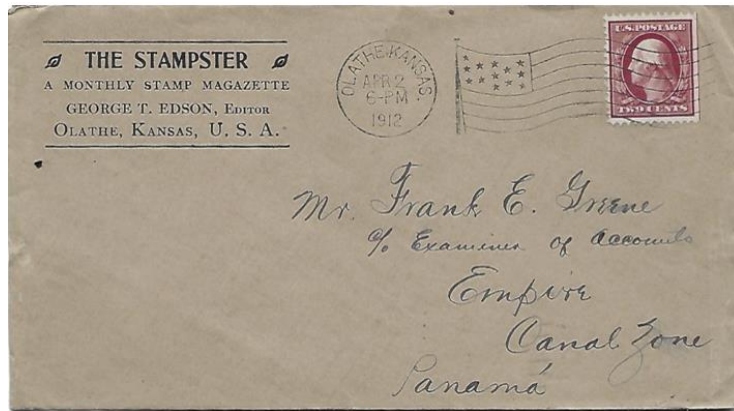 THE STAMPSTER
A MONTHLY STAMP MAGAZETTE
GEORGE T. EDSON, EDITOR
OLATHE, KANSAS, U. S. A.
OLATHE, KANSAS.
APR 2
6-PM
1912
U.S. POSTAGE
TWO CENTS
Mr. Frank E. Greene
c/o Examiner of Accounts
Empire
Canal Zone
Panamá